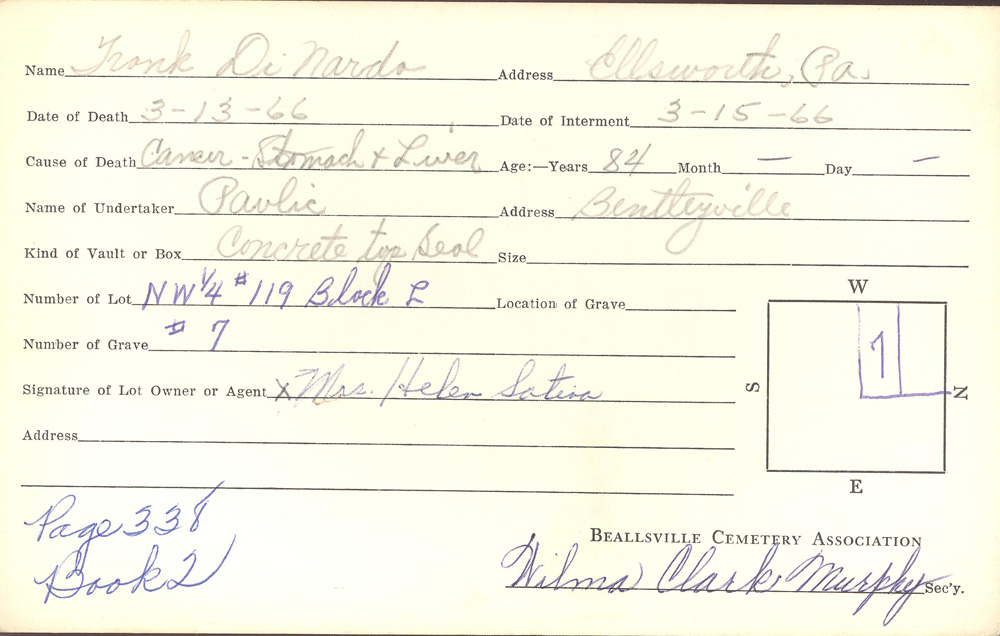 Name Frank Di Nardo Address Ellsworth, Pa.
Date of Death 3-13-66 Date of Interment 3-15-66
Cause of Death Cancer - Stomach & Liver Age:—Years 84 Month — Day —
Name of Undertaker Pavlic Address Bentleyville
Kind of Vault or Box Concrete top Seal Size
Number of Lot NW 1/4 #119 Block L Location of Grave
Number of Grave # 7
Signature of Lot Owner or Agent X Mrs. Helen
Address
W
S
7
N
E
Page 338
Book 2
BEALLSVILLE CEMETERY ASSOCIATION
Wilma Clark Murphy Sec'y.